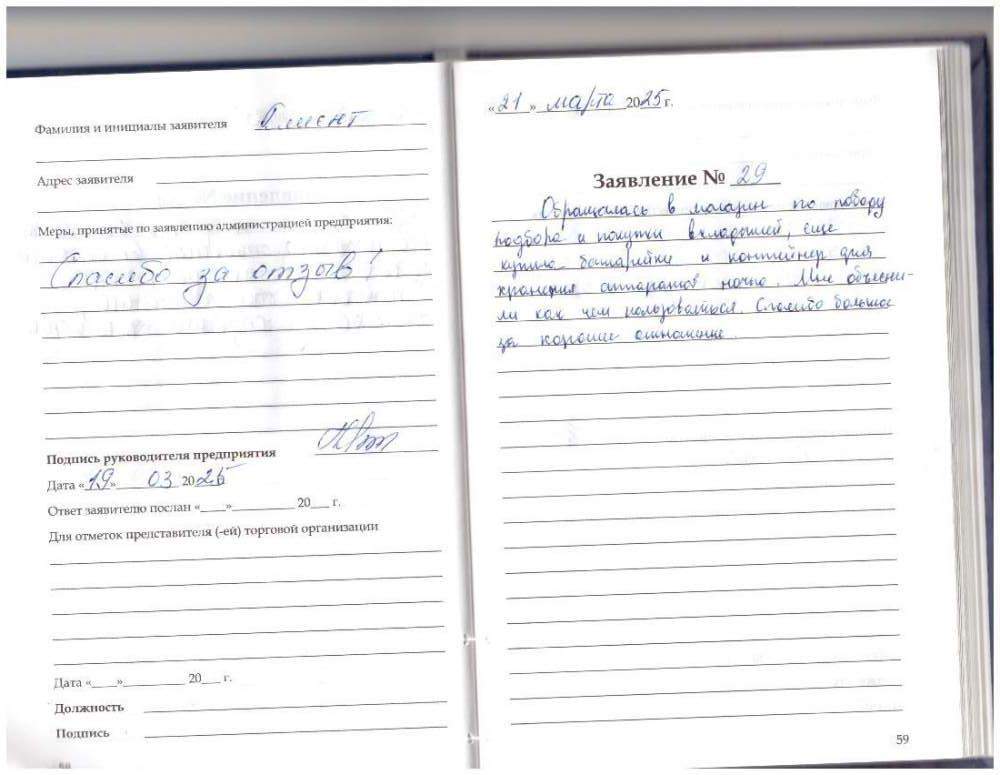 Фамилия и инициалы заявителя Клиент
Адрес заявителя
Меры, принятые по заявлению администрацией предприятия:
Спасибо за отзыв!
Подпись руководителя предприятия
Дата «19» 03 2025
Ответ заявителю послан «___»__________ 20___ г.
Для отметок представителя (-ей) торговой организации
Дата «____»__________ 20___ г.
Должность
Подпись
«21» марта 2025 г.
Заявление № 29
Обращалась в магазин по поводу
подбора и покупки вкладышей, еще
купила батарейки и контейнер для
хранения аппаратов ночью. Мне объясни-
ли как чем пользоваться. Спасибо большое
за хорошее отношение.
59